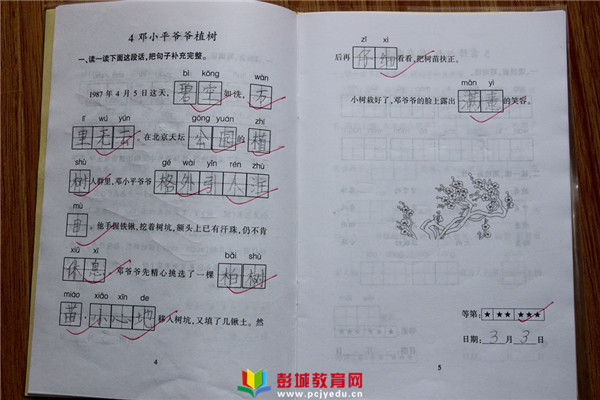 4 邓小平爷爷植树
一、读一读下面这段话,把句子补充完整。
bì kōng wàn
1987 年 4 月 5 日这天, 碧空 如洗, 万
lǐ wú yún gōng yuán zhí
里无云。在北京天坛 公园 的 植
shù gé wài yǐn rén zhù
树 人群里,邓小平爷爷 格外引人注
mù
目。他手握铁锹,挖着树坑,额头上已有汗珠,仍不肯
xiū xi bǎi shù
休息。邓爷爷先精心挑选了一棵 柏树
miáo xiǎo xīn de
苗,小心地 移入树坑,又填了几锹土。然
4
zǐ xì
后再 仔细 看看,把树苗扶正。
mǎn yì
小树栽好了,邓爷爷的脸上露出 满意 的笑容。
等第: ★★★★★
日期: 3 月 3 日
5
彭城教育网
www.pcjyedu.cn